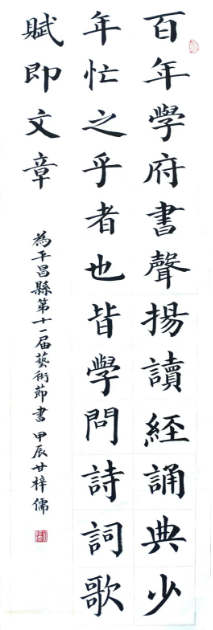 百年學府書聲揚讀經誦典少
年忙之乎者也皆學問詩詞歌
賦即文章
為平昌縣第十一届藝術節書甲辰廿梓儒